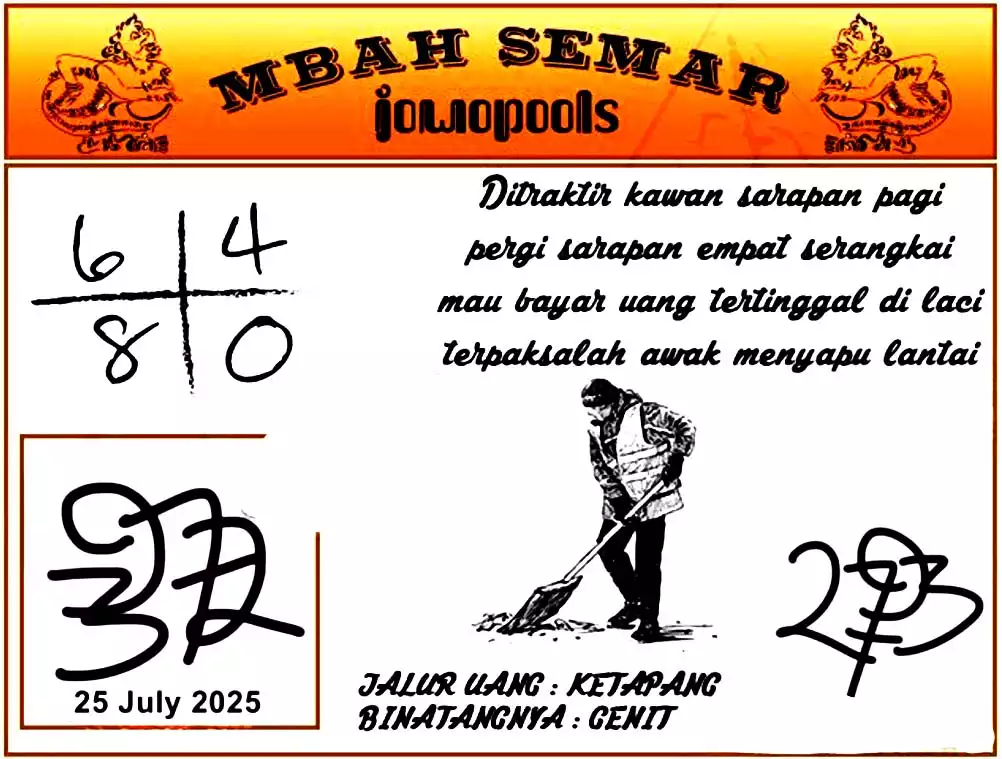 MBAH SEMAR
jowopools
Ditraktir kawan sarapan pagi
pergi sarapan empat serangkai
mau bayar uang tertinggal di laci
terpaksalah awak menyapu lantai
6 4
8 0
25 July 2025
JALUR UANG : KETAPANG
BINATANGNYA : GENIT